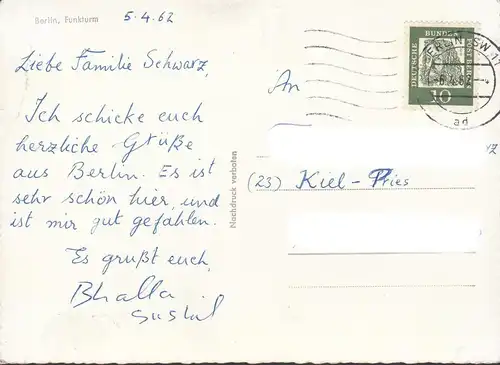 Berlin, Funkturm
5.4.62
Liebe Familie Schwarz,
Ich schicke euch
herzliche Grüße
aus Berlin. Es ist
sehr schön hier, und
ist mir gut gefahlen.
Es grußt euch,
Bhalla
Nachdruck verboten
An
(23) Kiel-Pries
DEUTSCHE BUNDESPOST BERLIN
10
BERLIN SW 11
-6.4.62
ad